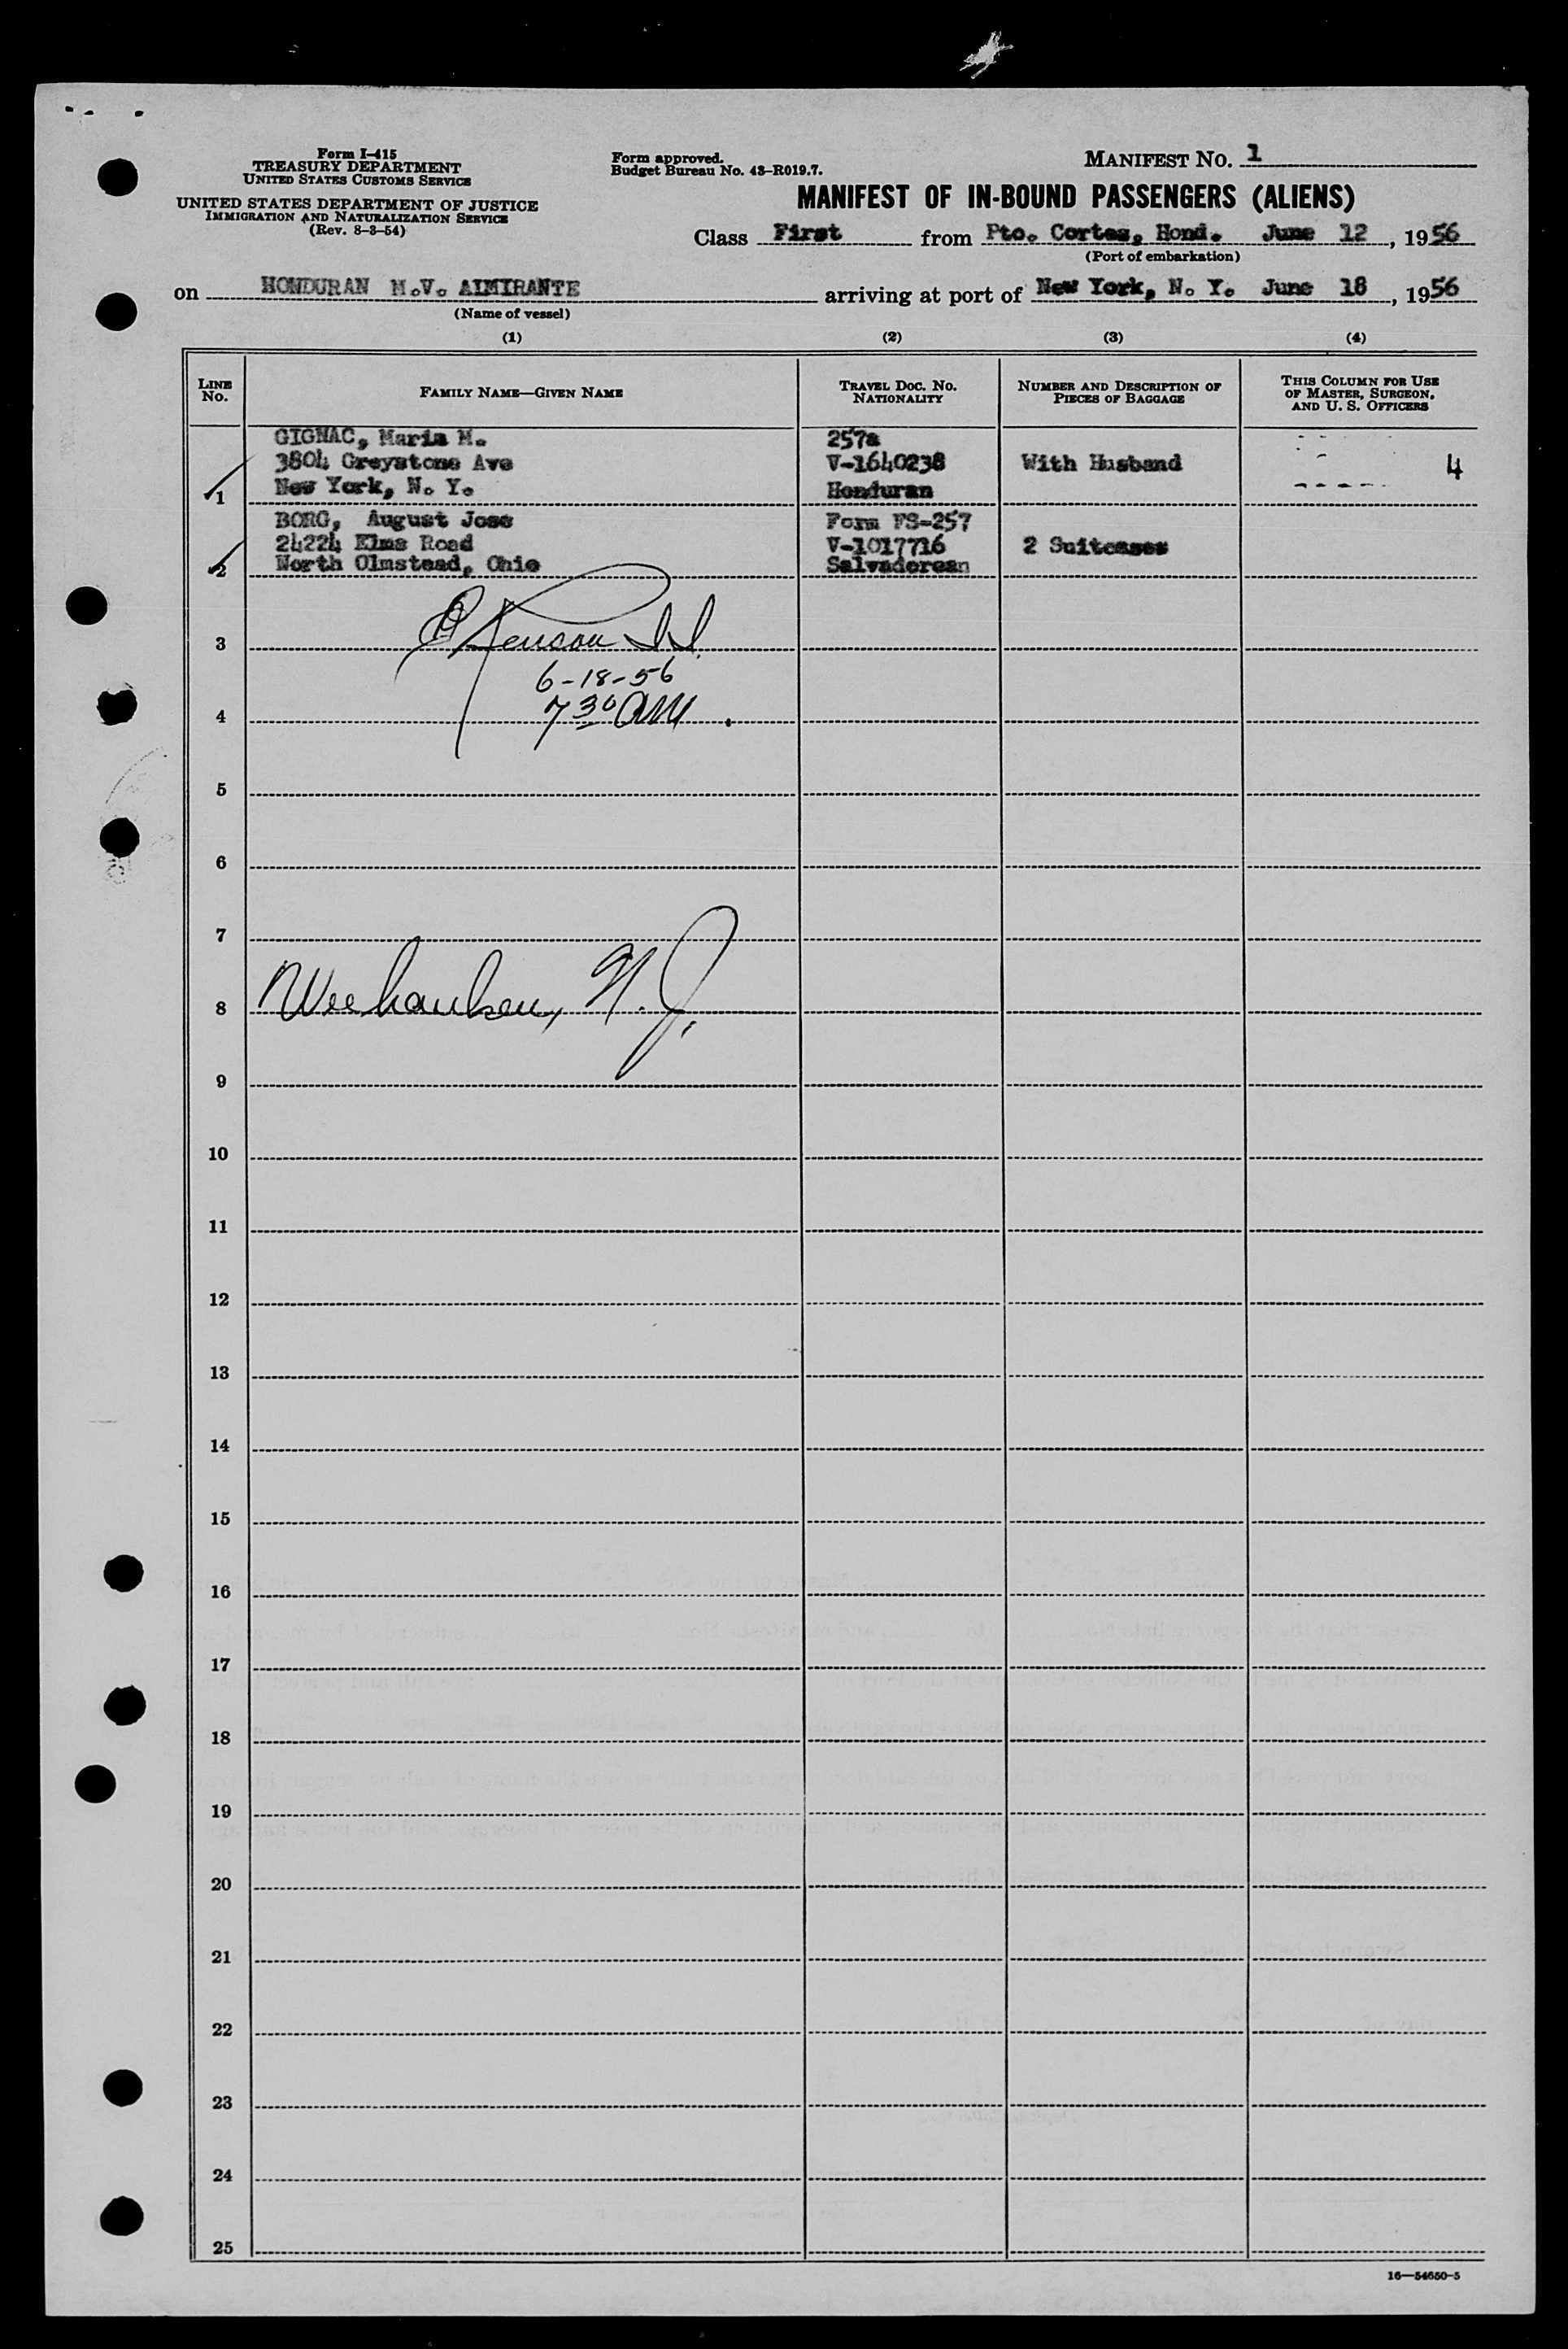 Form I-415
TREASURY DEPARTMENT
UNITED STATES CUSTOMS SERVICE
UNITED STATES DEPARTMENT OF JUSTICE
IMMIGRATION AND NATURALIZATION SERVICE
(Rev. 8-3-54)
Form approved.
Budget Bureau No. 43-R019.7.
MANIFEST NO. 1
MANIFEST OF IN-BOUND PASSENGERS (ALIENS)
Class First from Pto. Cortes, Hond. June 12, 1956
(Port of embarkation)
on HONDURAN M.V. ALMIRANTE arriving at port of New York, N. Y. June 18, 1956
(Name of vessel)
(1) (2) (3) (4)
LINE NO. FAMILY NAME—GIVEN NAME TRAVEL DOC. NO. NATIONALITY NUMBER AND DESCRIPTION OF PIECES OF BAGGAGE THIS COLUMN FOR USE OF MASTER, SURGEON, AND U. S. OFFICERS
GIGNAC, Maria M. 257a
3804 Greystone Ave V-1640238 With Husband 4
1 New York, N. Y. Honduran
BORG, August Jose Form FS-257
24224 Elms Road V-1017716 2 Suitcases
2 North Olmstead, Ohio Salvadorean
3
6-18-56
4 7 30 AM
5
6
7
8 Weehauken, N. J.
9
10
11
12
13
14
15
16
17
18
19
20
21
22
23
24
25
16—54650-5